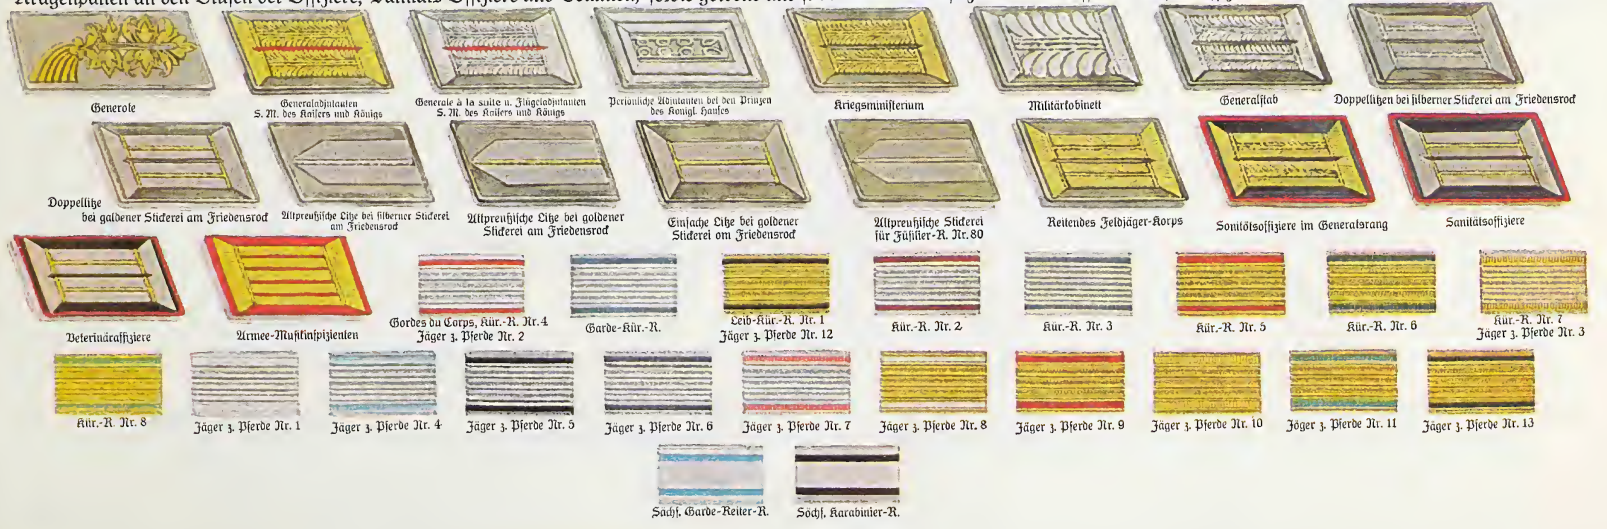 Kragenpatten an den Blusen der Offiziere, Sanitäts-Offiziere und
Generole
Generaladjutanten
S. M. des Kaisers und Königs
Generale à la suite u. Flügeladjutanten
S. M. des Kaisers und Königs
Persönliche Adjutanten bei den Prinzen
des Königl. Hauses
Kriegsministerium
Militärkobinett
Generalstab
Doppellitzen bei silberner Stickerei am Friedensrock
Doppellitze
bei goldener Stickerei am Friedensrock
Altpreußische Litze bei silberner Stickerei
am Friedensrock
Altpreußische Litze bei goldener
Stickerei am Friedensrock
Einfache Litze bei goldener
Stickerei om Friedensrock
Altpreußische Stickerei
für Füsilier-R. Nr. 80
Reitendes Feldjäger-Korps
Sonitötsoffiziere im Generalsrang
Sanitätsoffiziere
Veterinäroffiziere
Armee-Musikinspizienten
Gordes du Corps, Kür.-R. Nr. 4
Jäger z. Pferde Nr. 2
Garde-Kür.-R.
Leib-Kür.-R. Nr. 1
Jäger z. Pferde Nr. 12
Kür.-R. Nr. 2
Kür.-R. Nr. 3
Kür.-R. Nr. 5
Kür.-R. Nr. 6
Kür.-R. Nr. 7
Jäger z. Pferde Nr. 3
Kür.-R. Nr. 8
Jäger z. Pferde Nr. 1
Jäger z. Pferde Nr. 4
Jäger z. Pferde Nr. 5
Jäger z. Pferde Nr. 6
Jäger z. Pferde Nr. 7
Jäger z. Pferde Nr. 8
Jäger z. Pferde Nr. 9
Jäger z. Pferde Nr. 10
Jöger z. Pferde Nr. 11
Jäger z. Pferde Nr. 13
Sächs. Garde-Reiter-R.
Söchs. Karabinier-R.